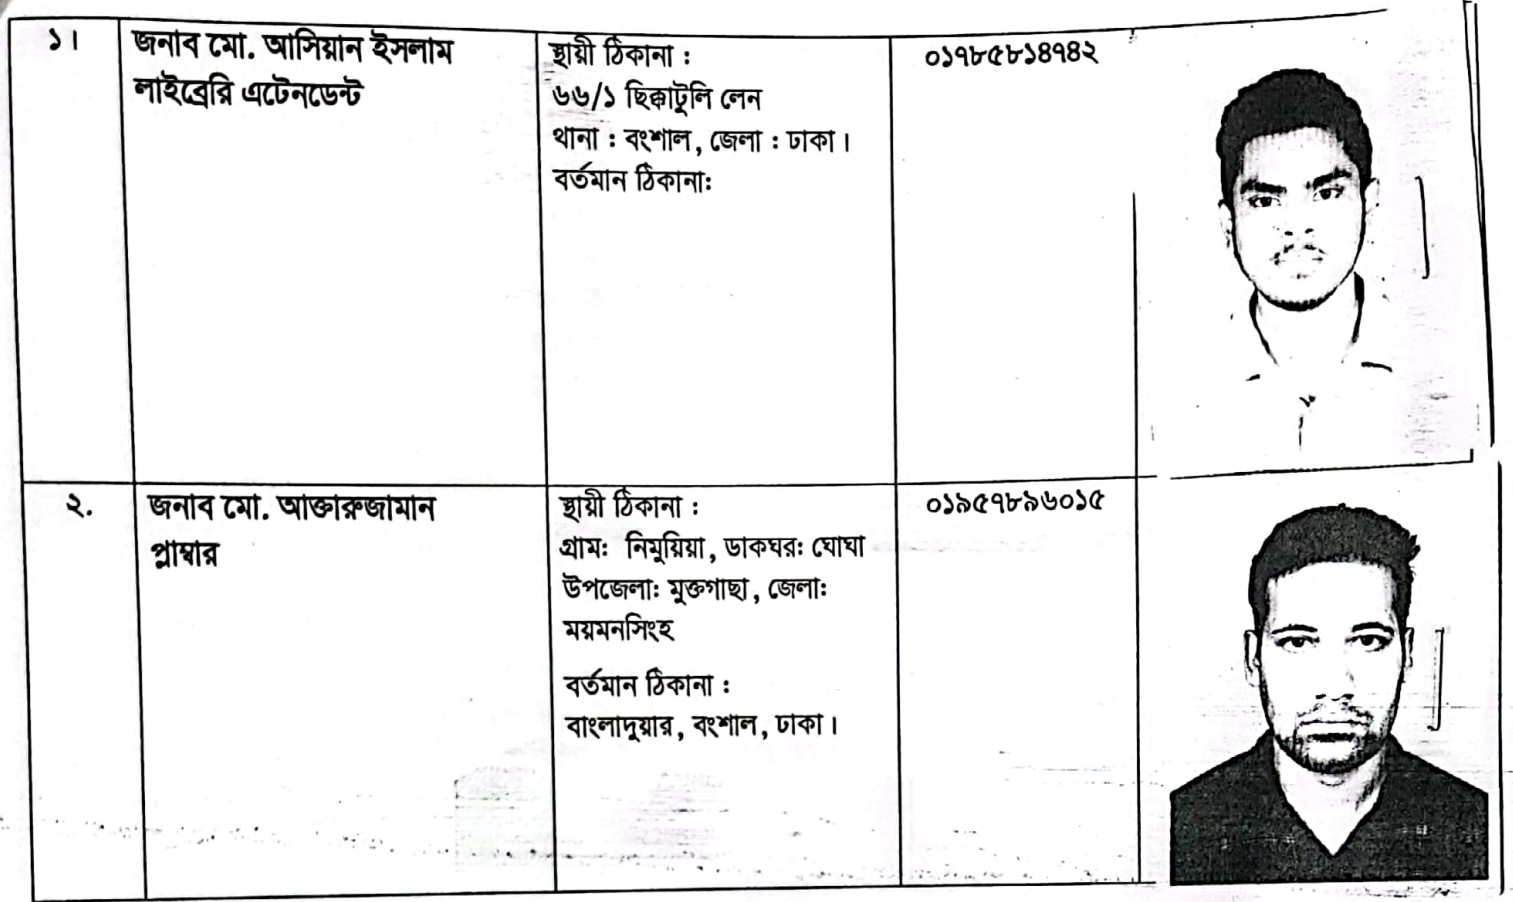 ১।
জনাব মো. আসিয়ান ইসলাম
লাইব্রেরি এটেনডেন্ট
স্থায়ী ঠিকানা :
৬৬/১ ছিক্কাটুলি লেন
থানা : বংশাল, জেলা : ঢাকা।
বর্তমান ঠিকানাঃ
০১৭৮৫৮১৪৭৪২
২.
জনাব মো. আক্তারুজামান
প্লাম্বার
স্থায়ী ঠিকানা :
গ্রামঃ নিমুয়িয়া, ডাকঘরঃ ঘোঘা
উপজেলাঃ মুক্তগাছা, জেলাঃ
ময়মনসিংহ
বর্তমান ঠিকানা :
বাংলাদুয়ার, বংশাল, ঢাকা।
০১৯৫৭৮৯৬০১৫